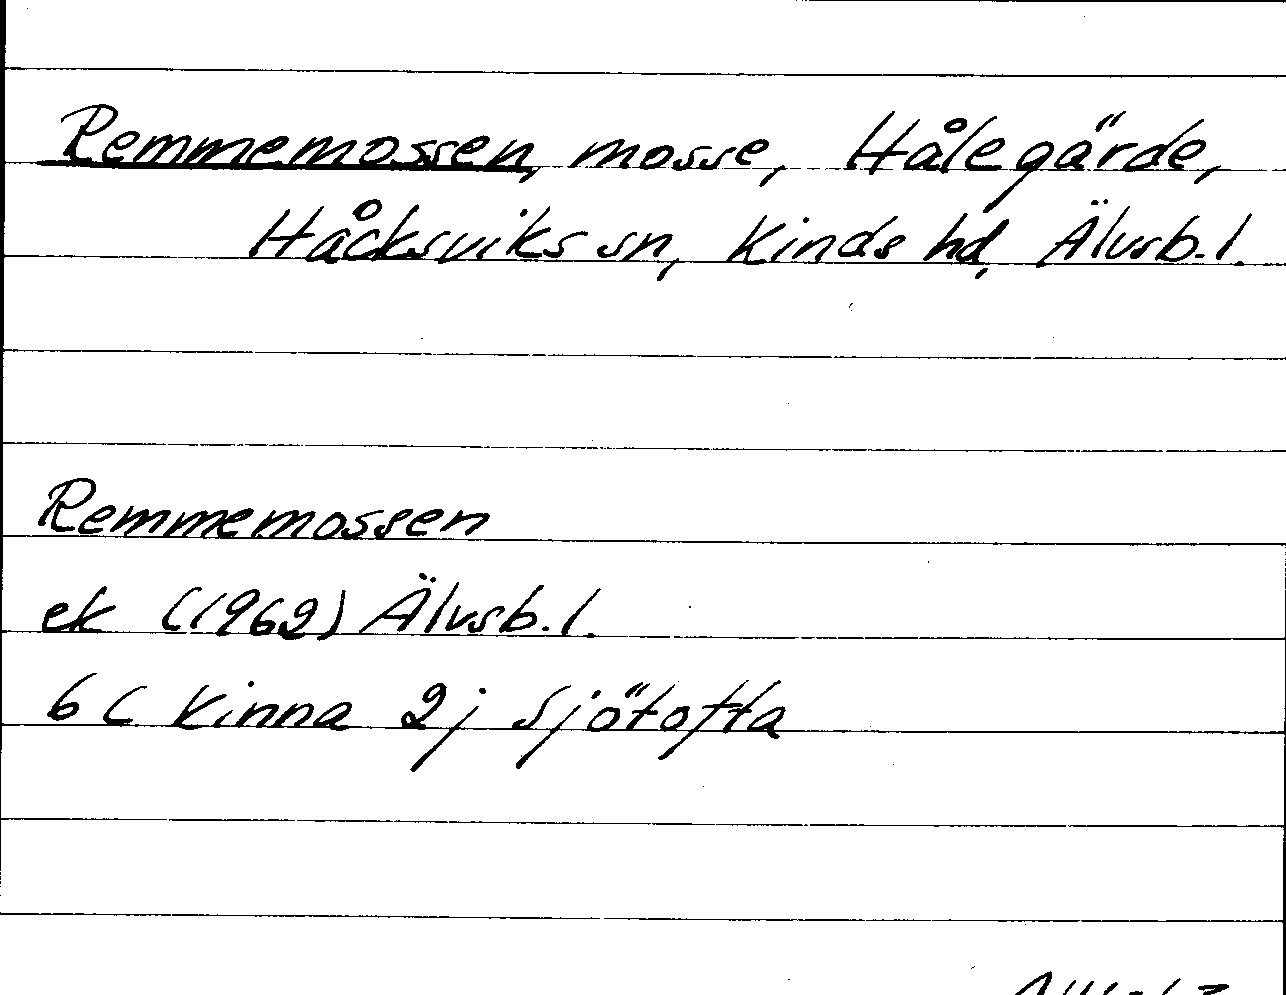 Remmemossen, mosse, Hålegärde,
Håcksviks sn, Kinds hd, Älvsb. l.
Remmemossen
ek (1962) Älvsb. l.
6 C Kinna 2j Sjötofta